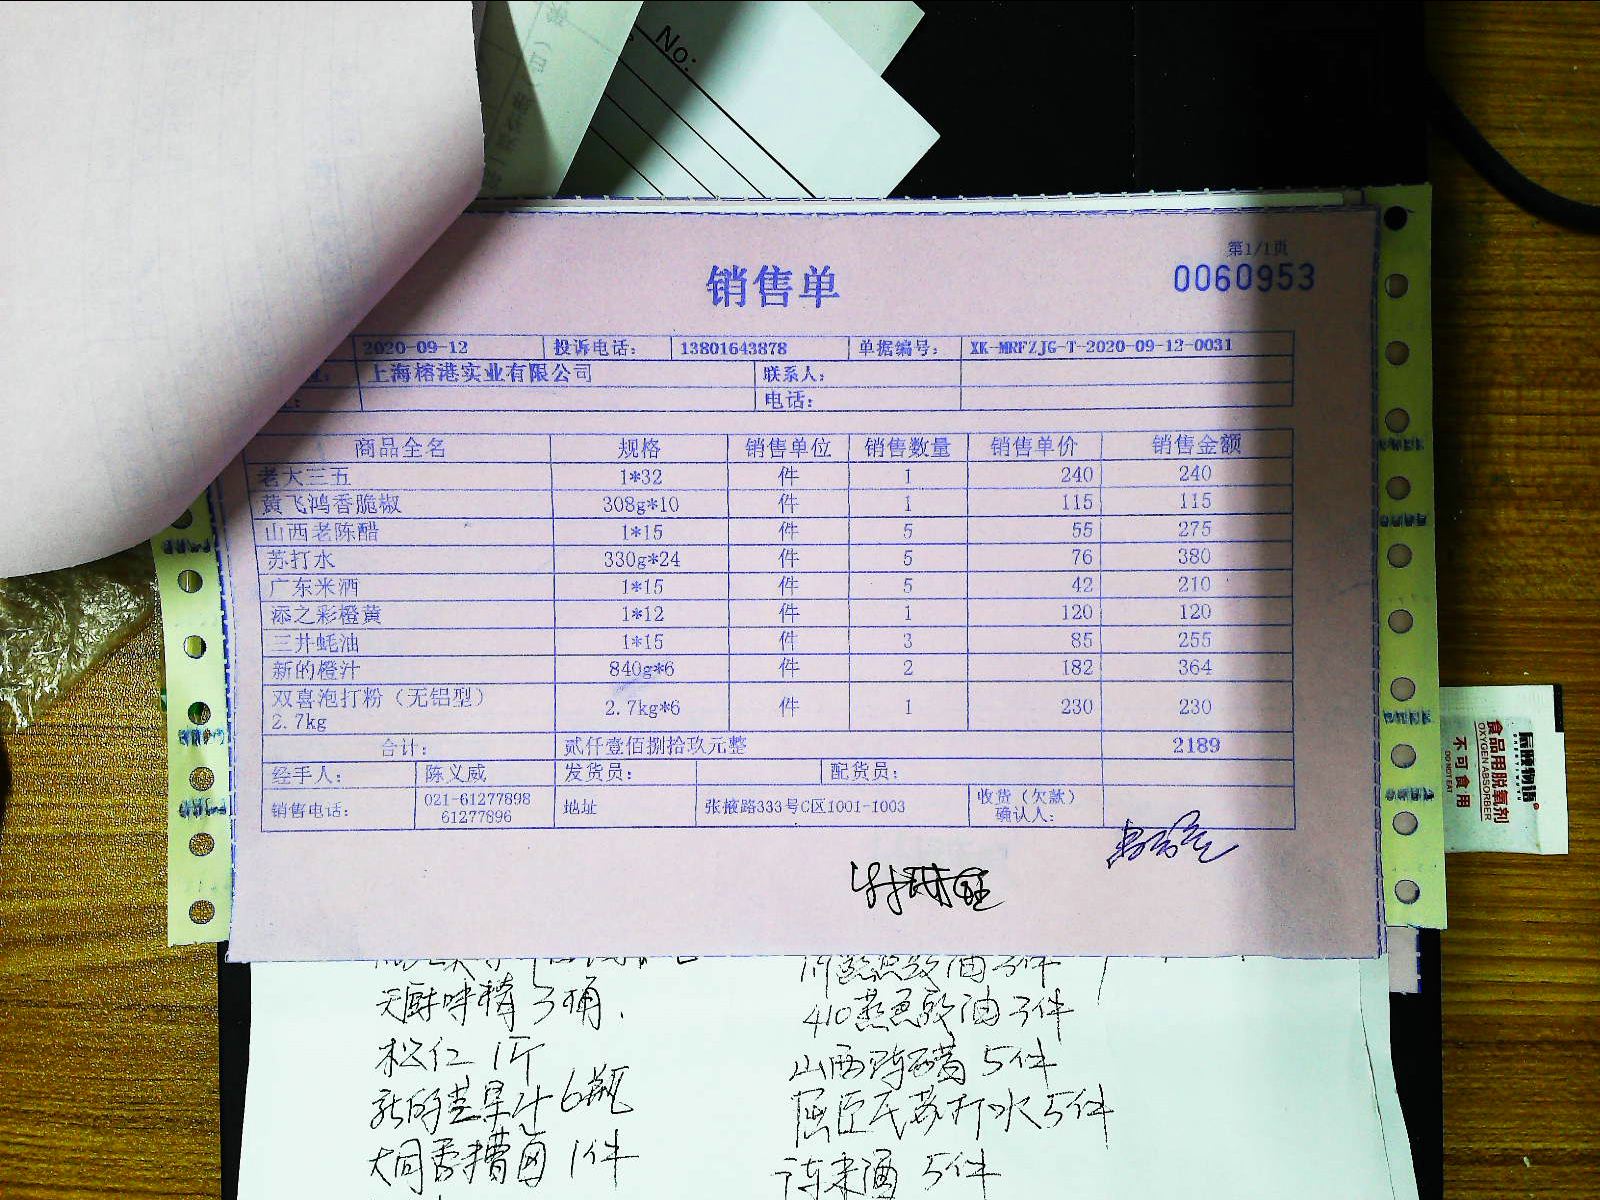 No:
第1/1页
销售单
0060953
2020-09-12 投诉电话: 13801643878 单据编号: XK-MRFZJG-T-2020-09-12-0031
上海榕港实业有限公司 联系人:
电话:
商品全名 规格 销售单位 销售数量 销售单价 销售金额
老大三五 1*32 件 1 240 240
黄飞鸿香脆椒 308g*10 件 1 115 115
山西老陈醋 1*15 件 5 55 275
苏打水 330g*24 件 5 76 380
广东米酒 1*15 件 5 42 210
添之彩橙黄 1*12 件 1 120 120
三井蚝油 1*15 件 3 85 255
新的橙汁 840g*6 件 2 182 364
双喜泡打粉（无铝型） 2.7kg*6 件 1 230 230
2.7kg
合计: 贰仟壹佰捌拾玖元整 2189
经手人: 陈义威 发货员: 配货员:
销售电话: 021-61277898 地址 张掖路333号C区1001-1003 收货（欠款）
61277896 确认人:
天厨味精 3桶.
松仁 1斤
新的芒果汁 6瓶
大同香糟卤 1件
410蒸鱼豉油 3件
山西陈醋 5件
屈臣氏苏打水 5件
米酒 5件
食品用脱氧剂
OXYGEN ABSORBER
不可食用
DO NOT EAT